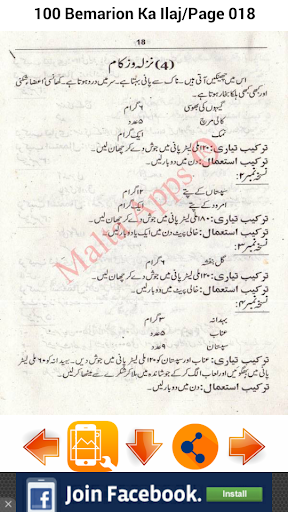 100 Bemarion Ka Ilaj/Page 018
18
(4) نزلہ و زکام
اس میں چھینکیں آتی ہیں۔ ناک سے پانی بہتا ہے۔ سر میں درد ہوتا ہے۔ کھانسی، اعضاء شکنی
اور کبھی کبھی ہلکا بخار ہوتا ہے۔
گیہوں کی بھوسی ۶ گرام
کالی مرچ ۵ عدد
نمک ایک گرام
ترکیب تیاری: ۱۲۰ ملی لیٹر پانی میں جوش دے کر چھان لیں۔
ترکیب استعمال: دن میں دو بار لیں۔
نسخہ نمبر ۲:
سپستاں کے پتے ۱۲ گرام
امرود کے پتے ایک گرام
ترکیب تیاری: ۱۸۰ ملی لیٹر پانی میں جوش دے کر چھان لیں۔
ترکیب استعمال: خالی پیٹ دن میں ایک یا دو بار لیں۔
نسخہ نمبر ۳:
گل بنفشہ ۶ گرام
ترکیب تیاری: ۱۲۰ ملی لیٹر پانی میں جوش دے کر چھان لیں۔
ترکیب استعمال: خالی پیٹ دن میں دو بار لیں۔
نسخہ نمبر ۴:
بہدانہ ۳ گرام
عناب ۵ عدد
سپستاں ۹ عدد
ترکیب تیاری: عناب اور سپستاں کو ۱۲۰ ملی لیٹر پانی میں جوش دیں۔ بہدانہ کو ۶۰ ملی لیٹر
پانی میں بھگوئیں اور لعاب الگ کر کے جوشاندہ میں ملا کر شکر سے میٹھا کر لیں۔
ترکیب استعمال: دن میں دو بار لیں۔
Malta Apps
Join Facebook.
Install